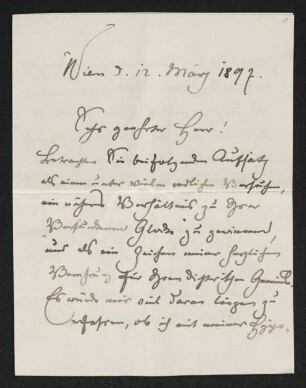 Wien d. 12. März 1897.
Sehr geehrter Herr!
Betrachten Sie beifolgenden Aufsatz
als einen unter vielen redlichen Versuchen,
ein näheres Verhältnis zu Ihrer
"Versunkenen Glocke" zu gewinnen,
und als ein Zeichen meiner herzlichen
Verehrung für Ihren dichterischen Genius.
Es würde mir viel daran liegen zu
erfahren, ob ich mit meiner Hypo-